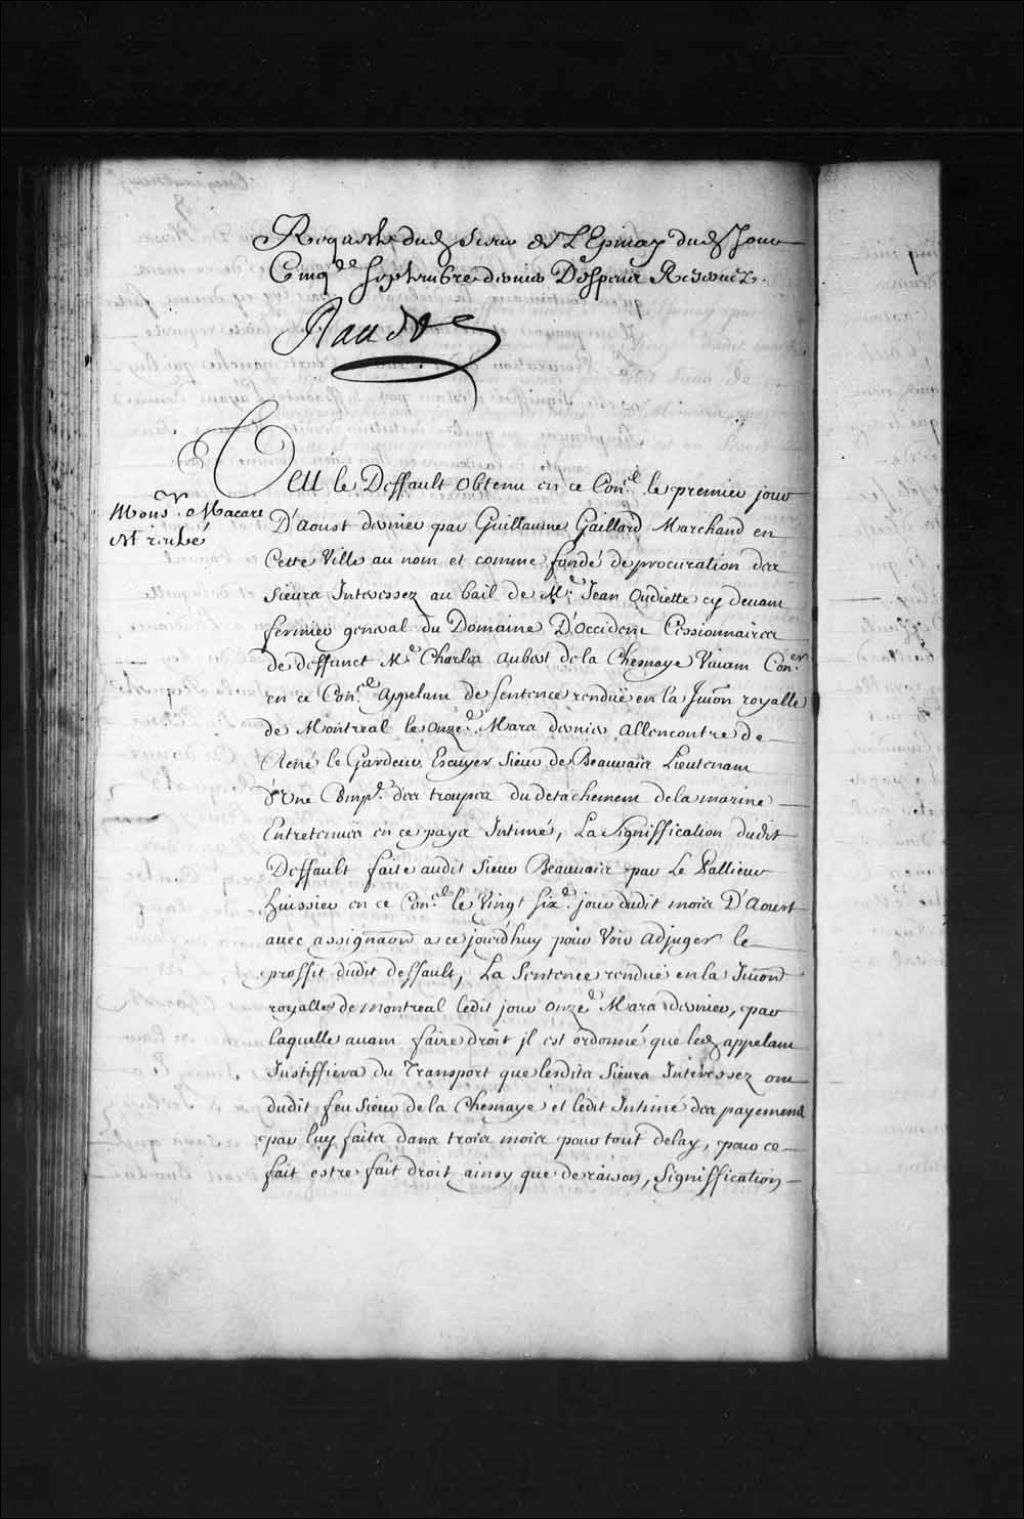 Requeste dud. Sieur de L'Epinay dud. Jour
Cinqe. Septembre dernier Despens Reservez.
Raudot
Veu le Deffault obtenu en ce Conel. le premier jour
Monsr. Macart
s'est retiré
D'aoust dernier par Guillaume Gaillard Marchand en
Cette Ville au nom et comme fondé de procuration des
Sieurs Interessez au bail de Me. Jean oudiette cy devant
fermier general du Domaine D'occident Cessionnaires
de deffunct Me. Charles aubert de la Chesnaye Vivant Coner.
en ce Conel. appelant de sentence rendue en la Juon. royalle
de Montreal le onze. Mars dernier allencontre de
René le Gardeur Escuyer Sieur de Beauvais Lieutenant
d'Une Compe. des troupes du detachement de la marine
Entretenues en ce pays Intimé, La Signiffication dudit
Deffault faite audit Sieur Beauvais par Le Pallieur
huissier en ce Conel. le Vingt sixe. jour dudit mois D'Aoust
avec assignaon a ce jourd'huy pour Voir adjuger le
proffit dudit deffault, La Sentence rendue en la Juon.
royalle de montreal ledit jour onze. Mars dernier, par
laquelle avant faire droit il est ordonné que led. appelant
Justiffiera du Transport que lesdits Sieurs Interessez ont
dudit feu Sieur de la Chesnaye et ledit Intimé des payemens
par luy faits dans trois mois pour tout delay, pour ce
fait estre fait droit ainsy que de raison, Signiffication